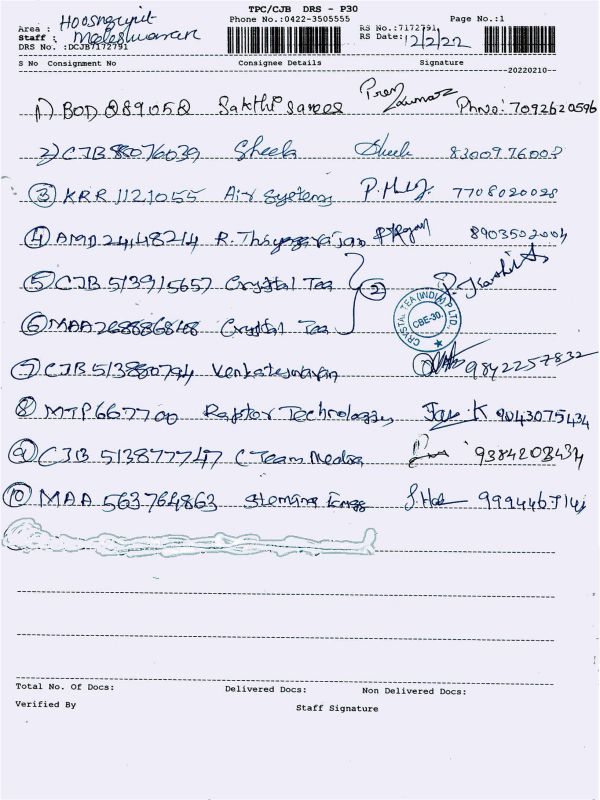 TPC/CJB DRS - P30
Phone No.:0422-3505555
Page No.:1
Area :
Staff :
DRS No. :DCJB7172791
RS No.:7172791
RS Date: 12/2/22
S No Consignment No Consignee Details Signature
20220210
1) BOD 289052 Sakthi Sarees Prem Kumar Phno: 7092620596
2) CJB 88076039 Sheela Sheela 8300976008
3 KRR 1121055 Air Systems 7708020028
4 AMD 24148214 R. Thiyagarajan 8903502004
5 CJB 513915657 Crystal Tea 2
6 MAA 268886868 Crystal Tea
CRYSTAL TEA (INDIA) P LTD. CBE-30.
7 CJB 513880794 Venkateswaran 9842257832
8 MTP 6677700 Raptor Technologys 9043075434
9 CJB 513877747 C Team Media 9384208434
10 MAA 563764863
Total No. Of Docs: Delivered Docs: Non Delivered Docs:
Verified By Staff Signature